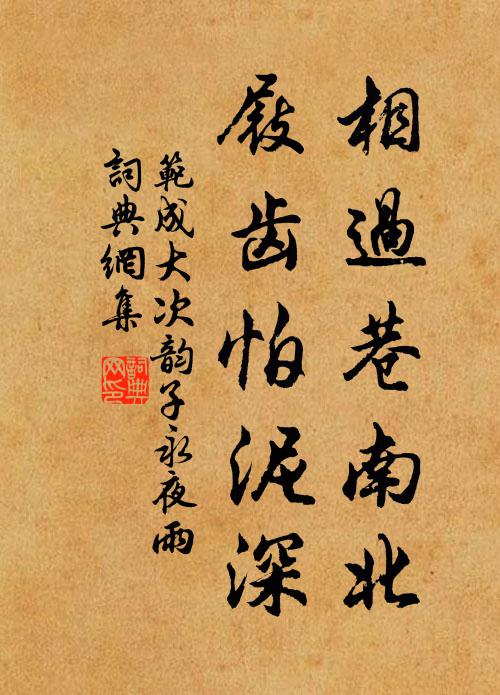 相過巷南北
屐齿怕泥深
範成大次韵子永夜雨
詞典網集
詞典网印